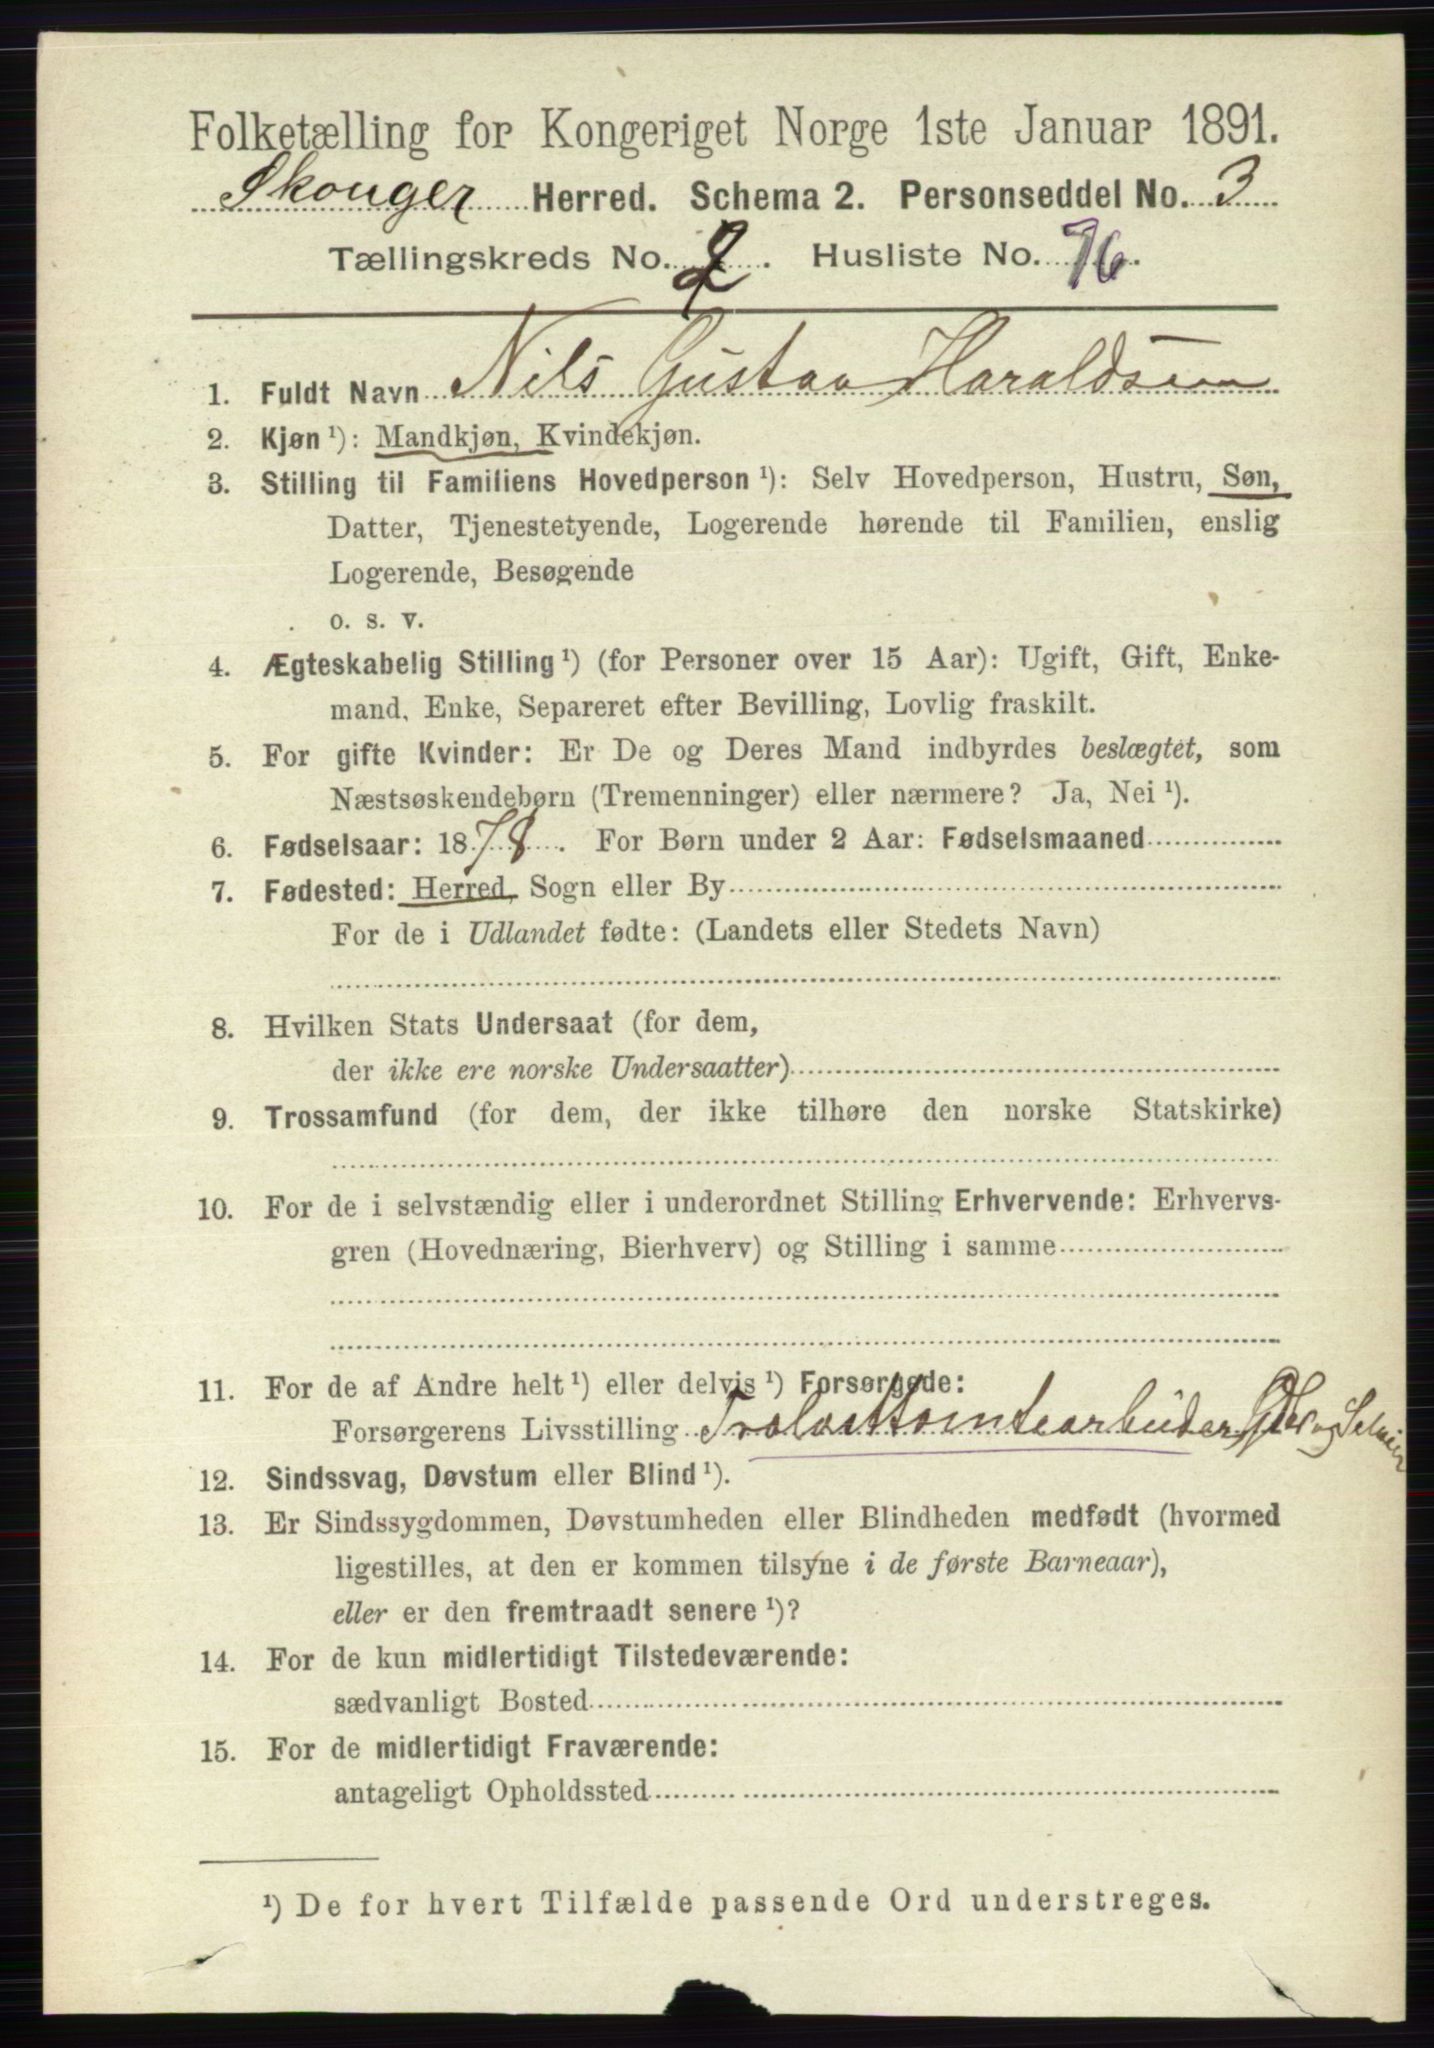 Folketælling for Kongeriget Norge 1ste Januar 1891.
Skouger Herred. Schema 2. Personseddel No. 3
Tællingskreds No. 2. Husliste No. 76.
1. Fuldt Navn Nils Gustav Haraldsen
2. Kjøn ¹): Mandkjøn, Kvindekjøn.
3. Stilling til Familiens Hovedperson ¹): Selv Hovedperson, Hustru, Søn,
Datter, Tjenestetyende, Logerende hørende til Familien, enslig
Logerende, Besøgende
o. s. v.
4. Ægteskabelig Stilling ¹) (for Personer over 15 Aar): Ugift, Gift, Enke-
mand, Enke, Separeret efter Bevilling, Lovlig fraskilt.
5. For gifte Kvinder: Er De og Deres Mand indbyrdes beslægtet, som
Næstsøskendebørn (Tremenninger) eller nærmere? Ja, Nei ¹).
6. Fødselsaar: 1878. For Børn under 2 Aar: Fødselsmaaned
7. Fødested: Herred, Sogn eller By
For de i Udlandet fødte: (Landets eller Stedets Navn)
8. Hvilken Stats Undersaat (for dem,
der ikke ere norske Undersaatter)
9. Trossamfund (for dem, der ikke tilhøre den norske Statskirke)
10. For de i selvstændig eller i underordnet Stilling Erhvervende: Erhvervs-
gren (Hovednæring, Bierhverv) og Stilling i samme
11. For de af Andre helt ¹) eller delvis ¹) Forsørgede:
Forsørgerens Livsstilling
12. Sindssvag, Døvstum eller Blind ¹).
13. Er Sindssygdommen, Døvstumheden eller Blindheden medfødt (hvormed
ligestilles, at den er kommen tilsyne i de første Barneaar),
eller er den fremtraadt senere ¹)?
14. For de kun midlertidigt Tilstedeværende:
sædvanligt Bosted
15. For de midlertidigt Fraværende:
antageligt Opholdssted
¹) De for hvert Tilfælde passende Ord understreges.